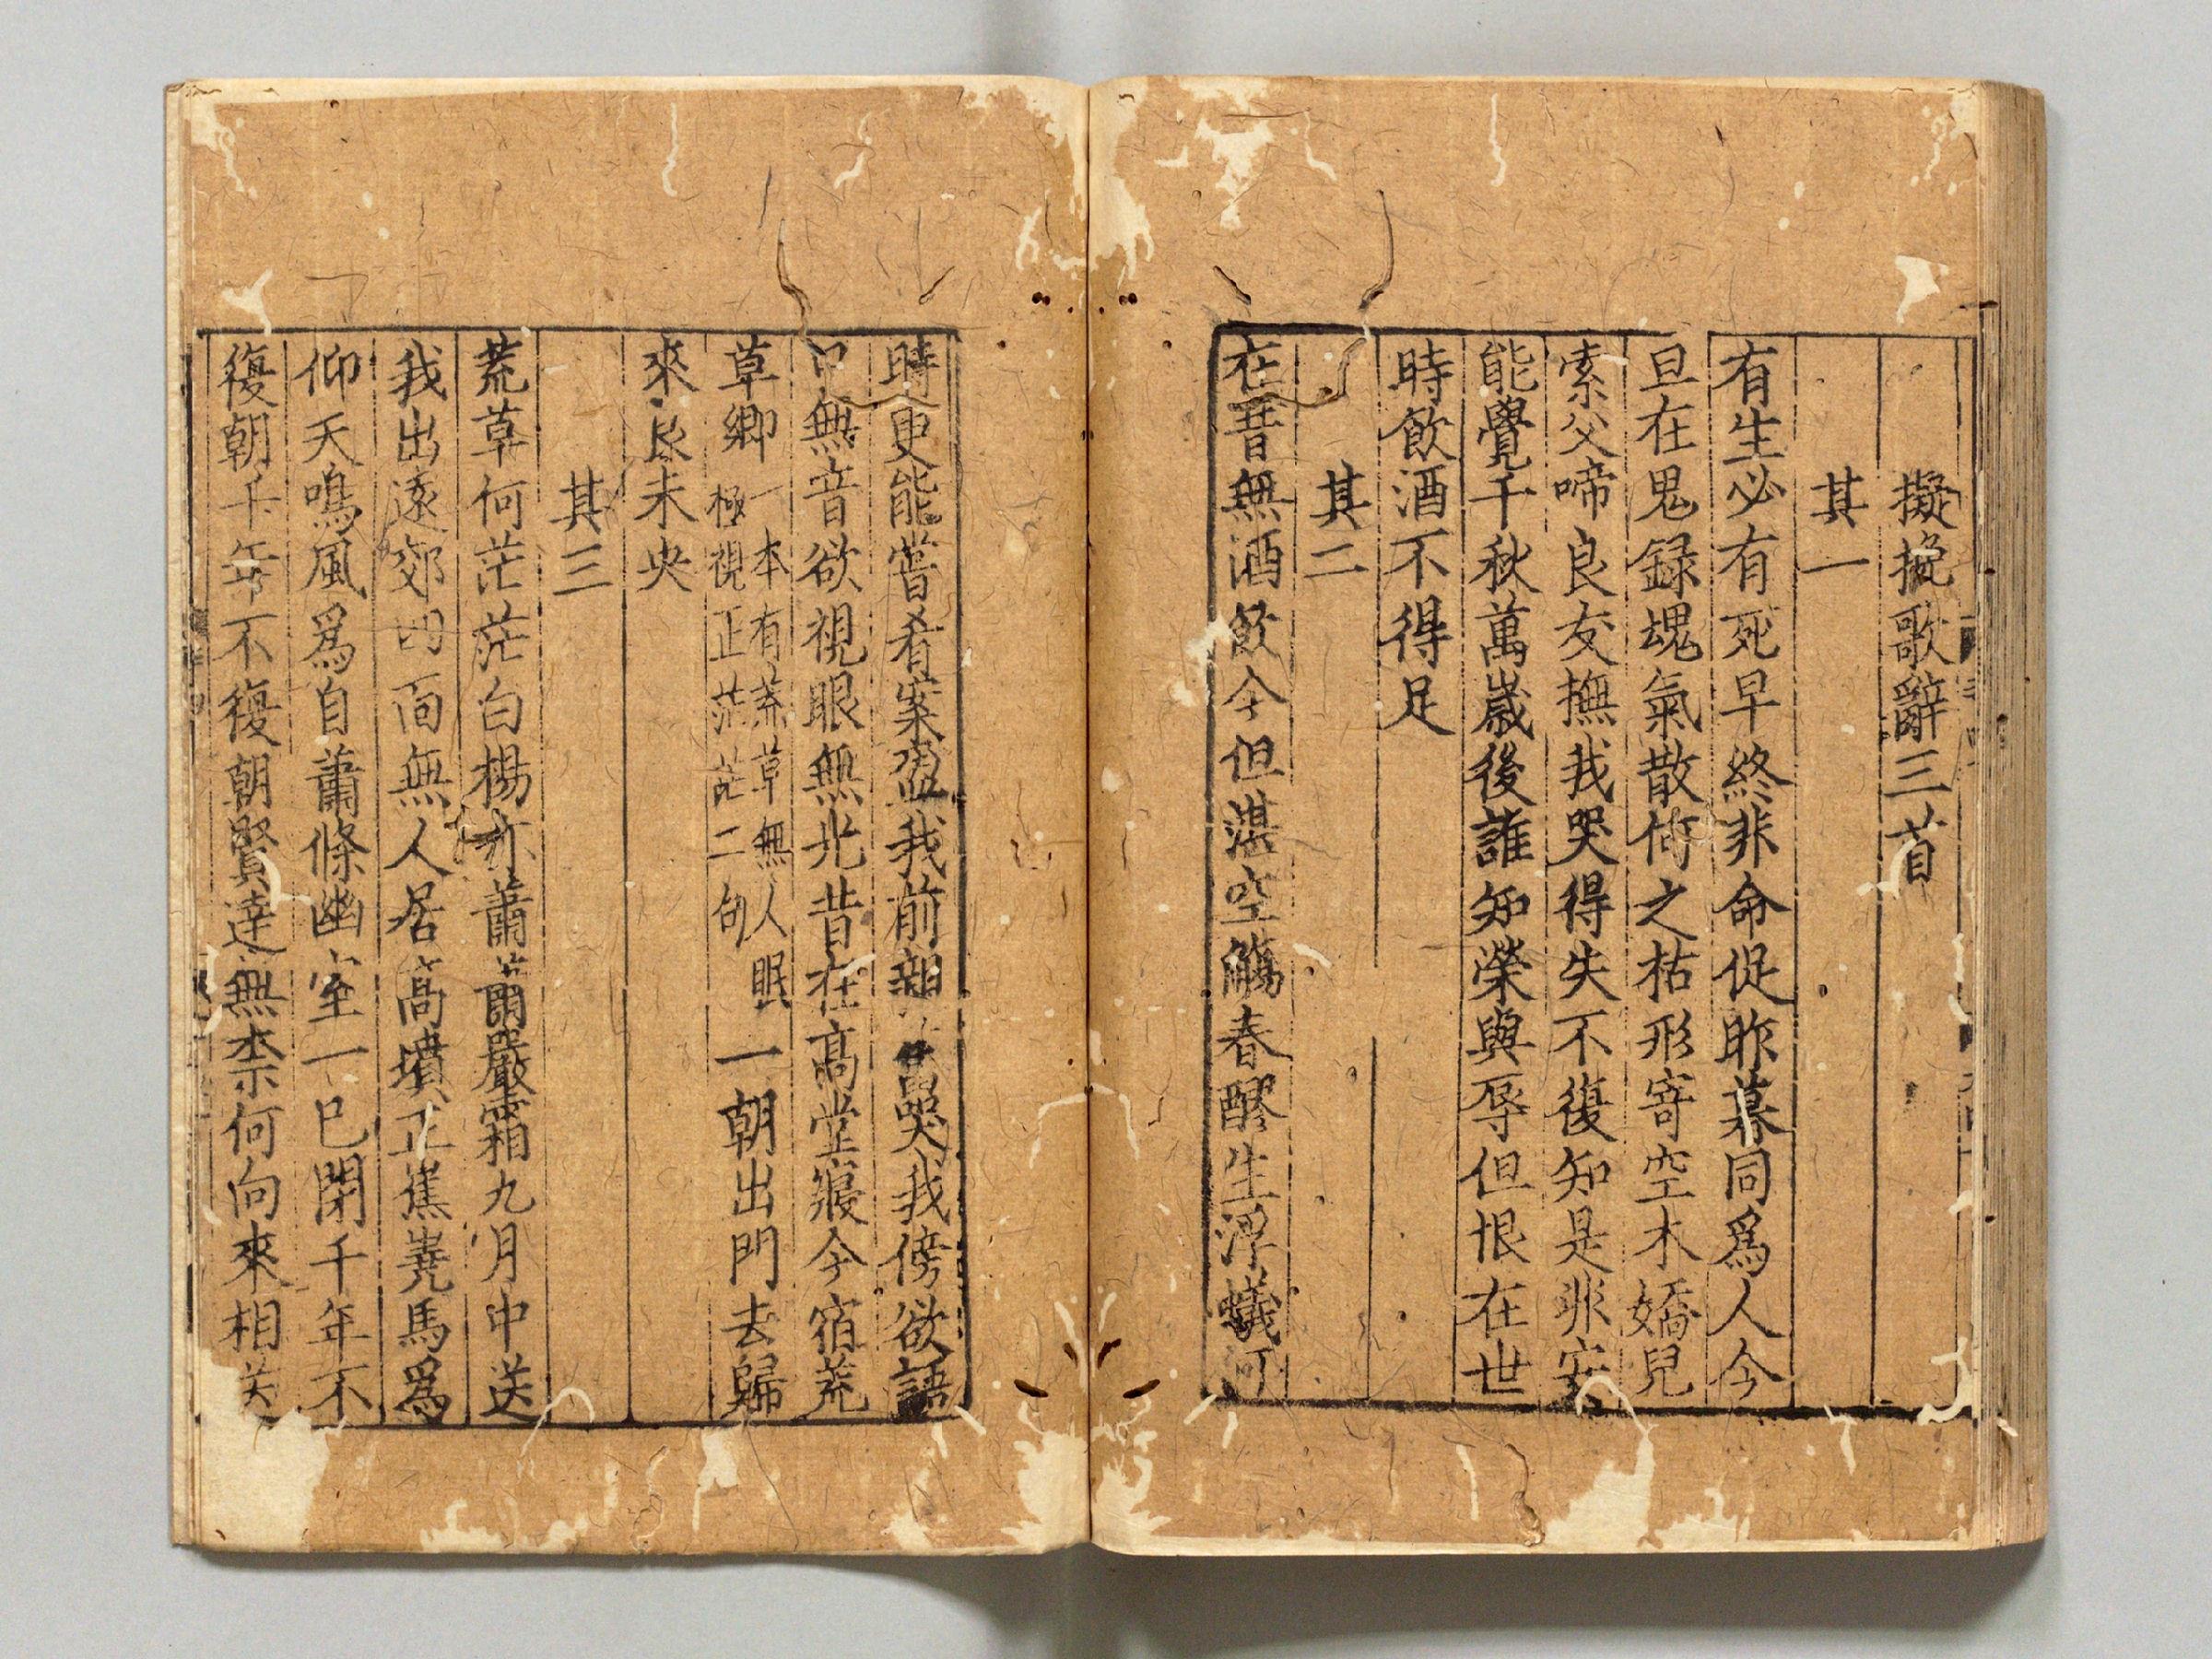 擬挽歌辭三首
其一
有生必有死早終非命促昨暮同爲人今
旦在鬼録塊氣散何之枯形寄空木嬌兒
索父啼良友撫我哭得失不復知是非安
能覺千秋萬嵗後誰知榮與辱但恨在世
時飲酒不得足
其二
在昔無酒飲今但湛空觴春醪生浮蟻何
時更能嘗肴案盈我前親哭我傍欲語
口無音欲視眼無光昔在高堂寢今宿荒
草鄉
一本有荒草無人眠
極視正茫茫二句
一朝出門去歸
來良未央
其三
荒草何茫茫白楊亦蕭蕭嚴霜九月中送
我出遠郊四面無人居高墳正蕉嶤馬爲
仰天鳴風爲自蕭條幽室一已閉千年不
復朝千年不復朝賢達無柰何向來相送